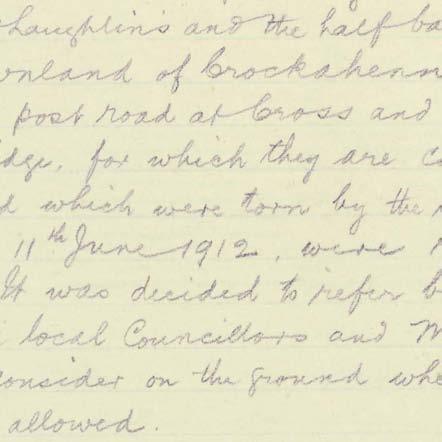 Laughlin's and the half ba
wnland of Crockahenn
post road at Cross and
idge, for which they are c
d which were torn by the
11th June 1912, were
It was decided to refer b
local Councillors and M
consider on the ground whe
allowed.